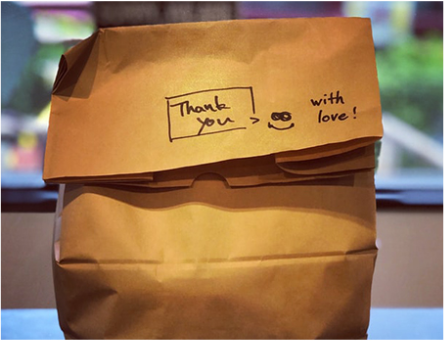 Thank
you
with
love!